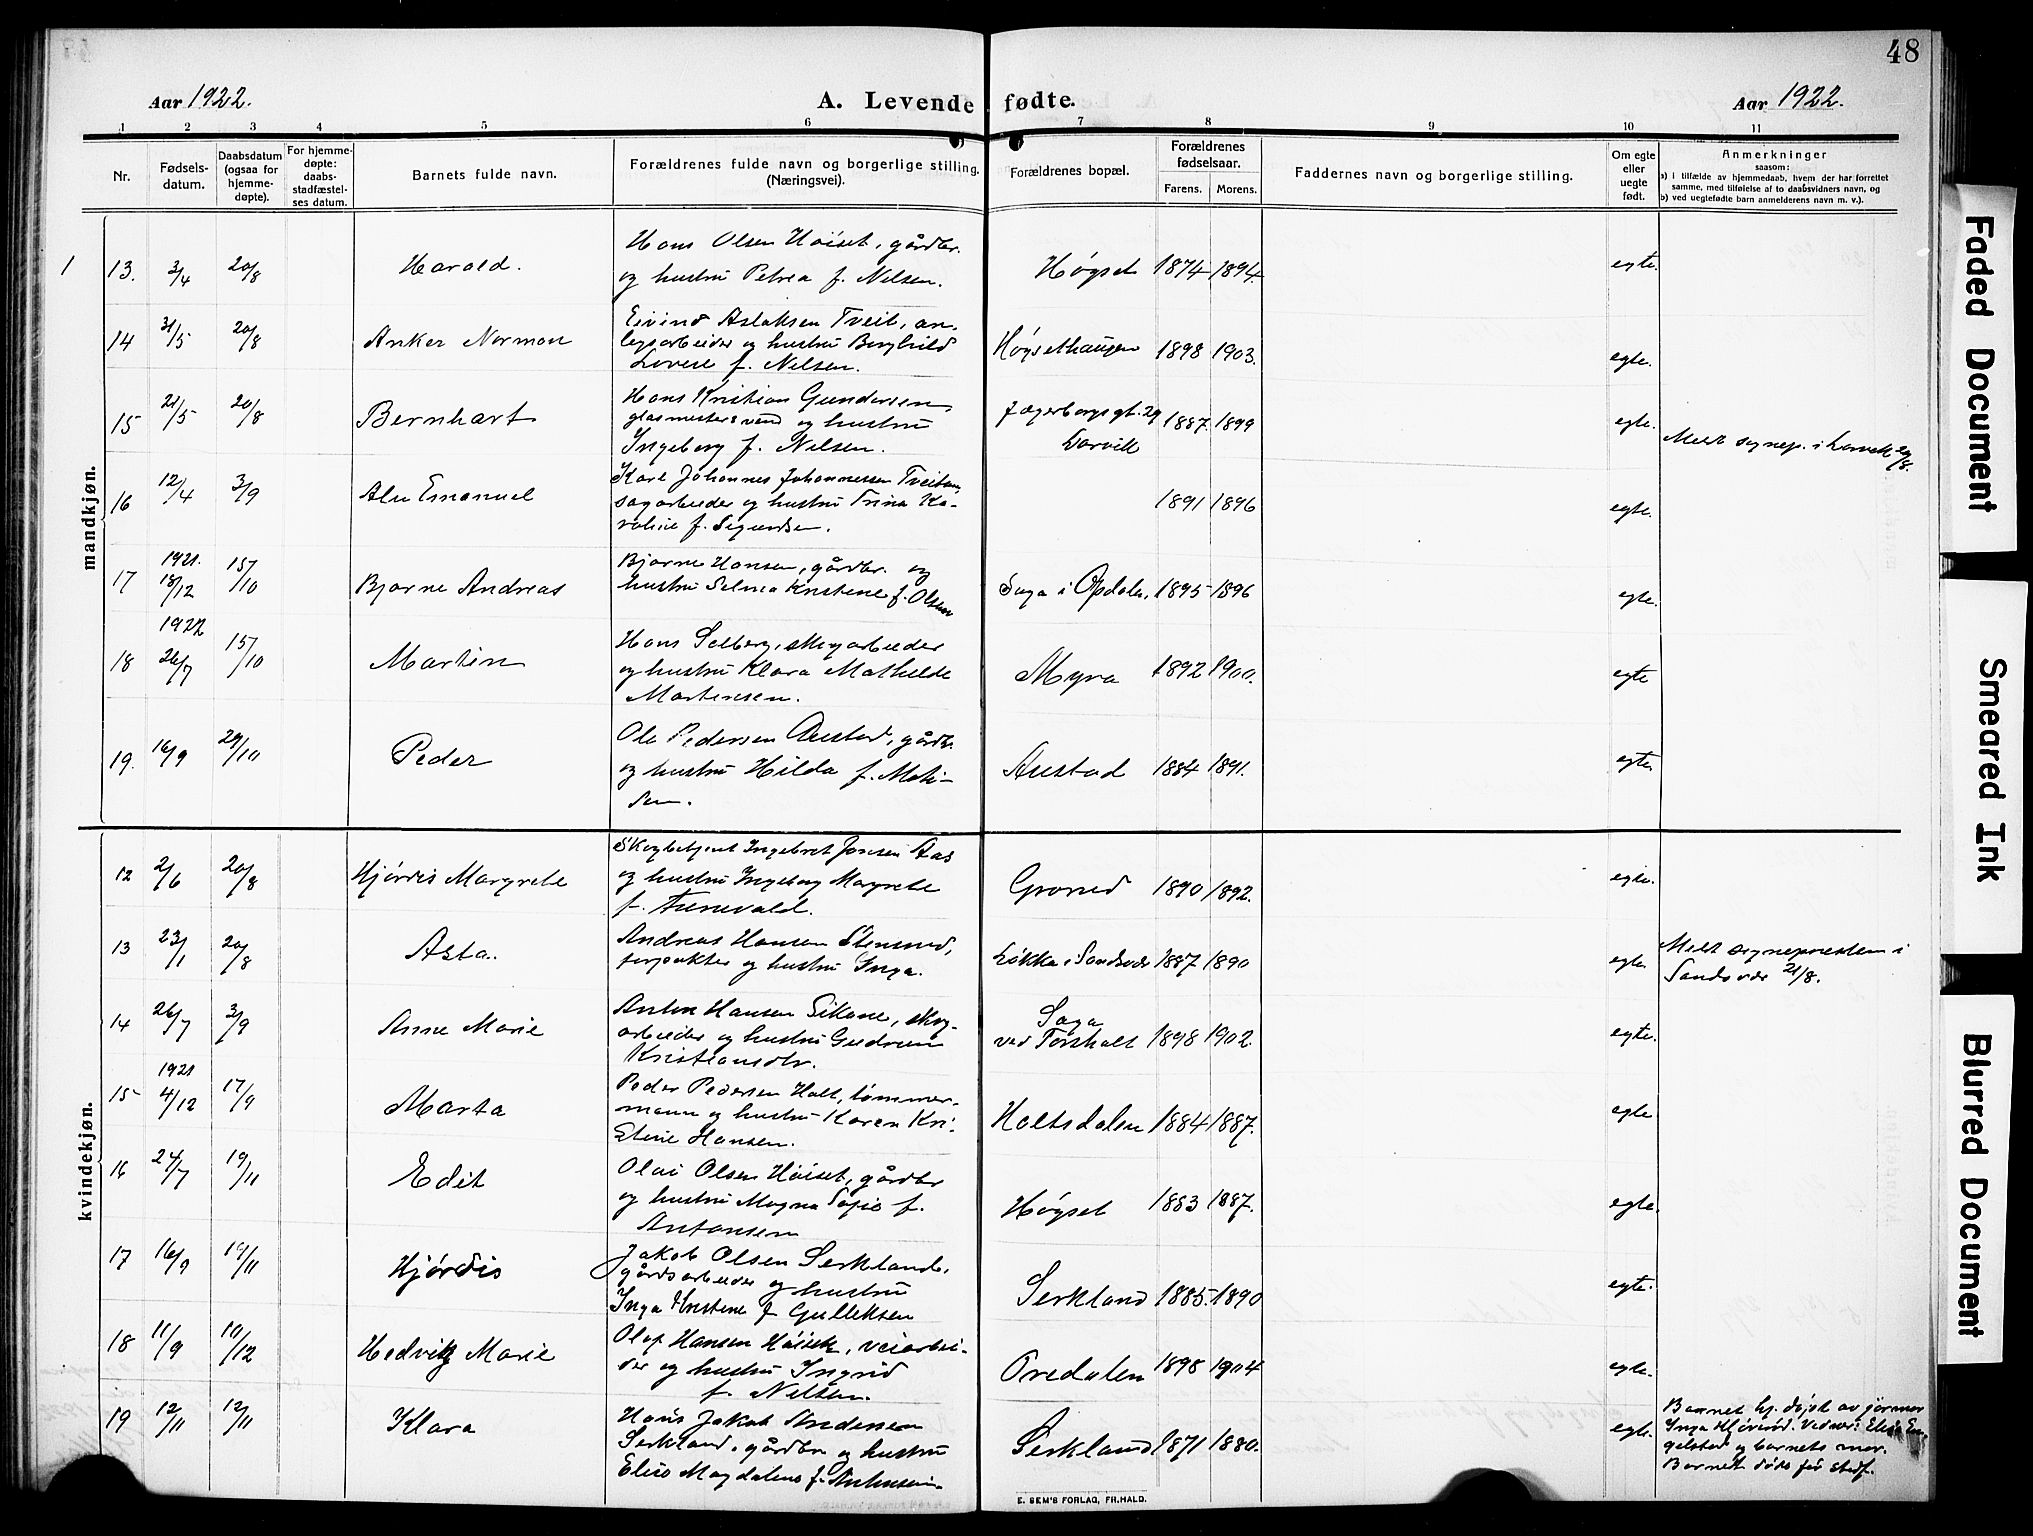 48
Aar 1922.
A. Levende fødte.
Aar 1922.
1 2 3 4 5 6 7 8 9 10 11
Nr.
Fødsels-
datum.
Daabsdatum
(ogsaa for
hjemme-
døpte).
For hjemme-
døpte:
daabs-
stadfæstel-
ses datum.
Barnets fulde navn.
Forældrenes fulde navn og borgerlige stilling.
(Næringsvei).
Forældrenes bopæl.
Forældrenes
fødselsaar.
Farens. Morens.
Faddernes navn og borgerlige stilling.
Om egte
eller
uegte
født.
Anmerkninger
saasom:
a) i tilfælde av hjemmedaab, hvem der har forrettet
samme, med tilføielse af to daabsvidners navn, og
b) ved uegtefødte barn anmelderens navn m. v.).
mandkjøn.
1
13. 3/4 20/8 Harald.
Hans Olsen Høiset, gårdbr.
og hustru Petrea f. Nelsen.
Høgset 1874 1894. egte.
14 31/5 20/8 Anker Norman
Eivind Aslaksen Tveit, an-
legsarbeider og hustru Borghild
Lovise f. Nelsen.
Høgsethaugen 1898 1903. egte.
15 21/5 20/8 Bernhart
Hans Kristian Gundersen,
glasmestersvend og hustru
Ingeborg f. Nelsen.
Jegerborgsgt. 29
Larvik
1887. 1899 egte.
Melt sognep. i Larvik 29/8.
16 12/4 3/9 Emanuel
Karl Johannes Johannessen Tveitan,
sagarbeider og hustru Trina Ka-
roline f. Sigurdsen.
1891 1896 egte.
17 1921. 18/12 15/10 Bjarne Andreas
Bjarne Hansen, gårdbr. og
hustru Selma Kristine f. Olsen
Saga i Opdalen, 1895 1896 egte.
18 1922 26/7 15/10 Martin
Hans Solberg, skogarbeider
og hustru Klara Mathilde
Martinsen.
Myra 1892 1900. egte
19. 16/9 29/10 Peder
Ole Pedersen Austad, gårdbr.
og hustru Hilda f. Mati-
sen.
Austad 1884 1891. egte
kvindekjøn.
12 2/6 20/8 Hjørdis Margrete
Skogbetjent Ingebret Jonsen Aas
og hustru Ingeborg Margrete
f. Furuvald.
Grorud 1890 1892. egte.
13 23/1 20/8 Asta.
Andreas Hansen Stensrud,
forpakter og hustru Inga.
Løkka i Sandsvær 1887 1890 egte
Melt sogneprestem i
Sandsvær 21/8.
14 26/7 3/9 Anne Marie
Anton Hansen Sikane, skog-
arbeider og hustru Gudrun
Kristiansdtr.
Saga
ved Torsholt 1898 1902. egte.
15 1921 4/12 17/9 Marta
Peder Pedersen Holt, tømmer-
mann og hustru Karen Kri-
stine Hansen.
Holtsdalen 1884 1887. egte
16 24/7 19/11 Edit
Olai Olsen Høiset, gårdbr
og hustru Magna Sofie f.
Antonsen
Høgset 1883 1887. egte.
17 16/9 19/11 Hjørdis
Jakob Olsen Serkland,
gårdsarbeider og hustru
Inga Kristine f Gulleksen
Serkland 1885. 1890 egte.
18 11/9 10/12 Hedvig Marie
Olaf Hansen Høisek, veiarbei-
der og hustru Ingrid
f. Nelsen.
Oredalen 1898 1904 egte.
19 12/11 12/11 Klara
Hans Jakob Andersen
Serkland, gårdbr og hustru
Elise Magdalene f. Antonsen
Serkland 1871 1880. egte.
Barnet hj. døpt av jormor
Inga Kjøverød. Vedner: Elise En-
gelstad og barnets mor.
Barnet døde før stadf.
E. SEM'S FORLAG, FR.HALD.
Faded Document
Smeared Ink
Blurred Document